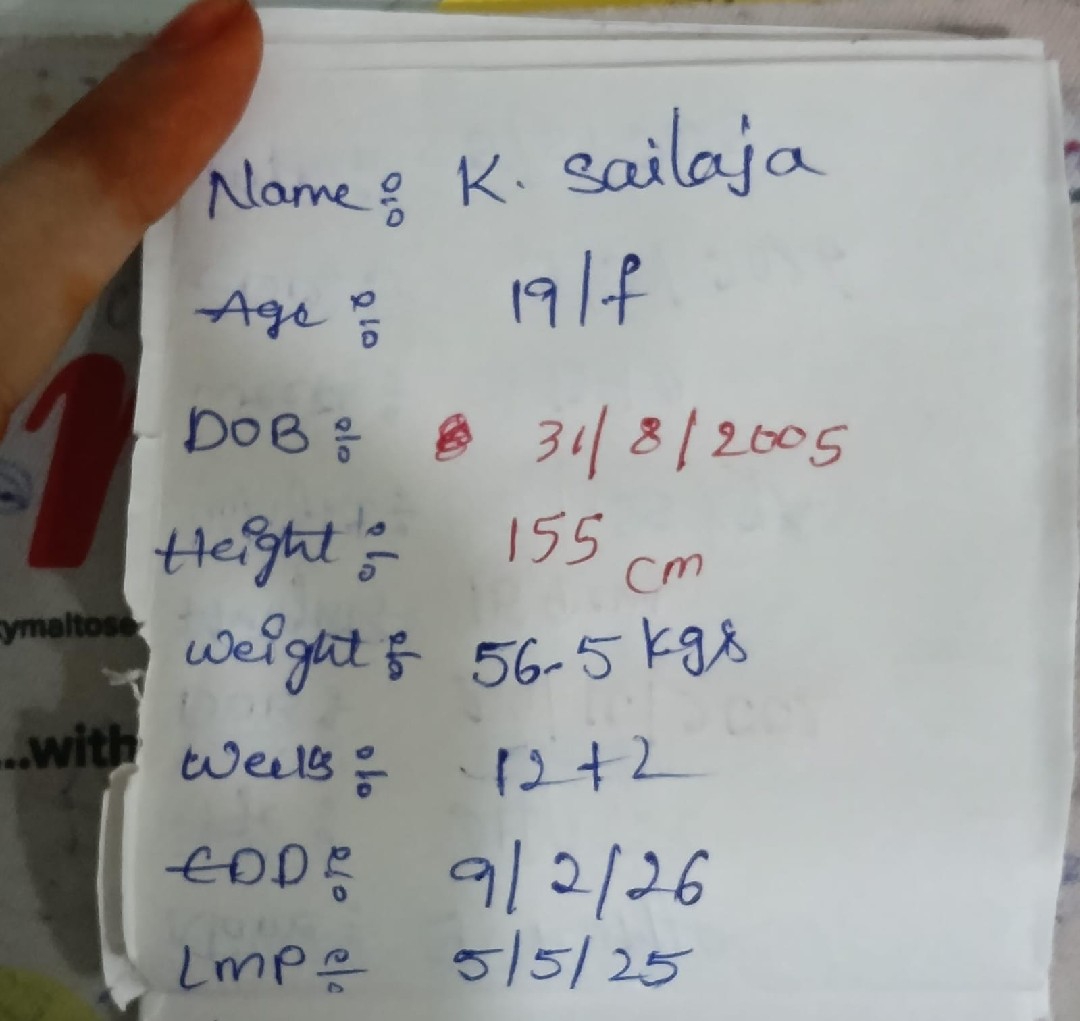 Name : K. Sailaja
Age : 19/f
DOB : 31/8/2005
Height : 155 cm
Weight : 56.5 kgs
Weeks : 12+2
EDD : 9/2/26
LMP : 5/5/25
ymaltose
...with